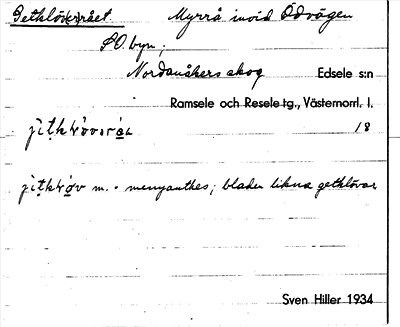 Getklövsrået. Myrrå invid Ödvägen
S.O. byn;
Nordanåkers skog Edsele s:n
Ramsele och Resele tg., Västernorrl. l.
18
m. = menyanthes; bladen likna getklövar
Sven Hiller 1934